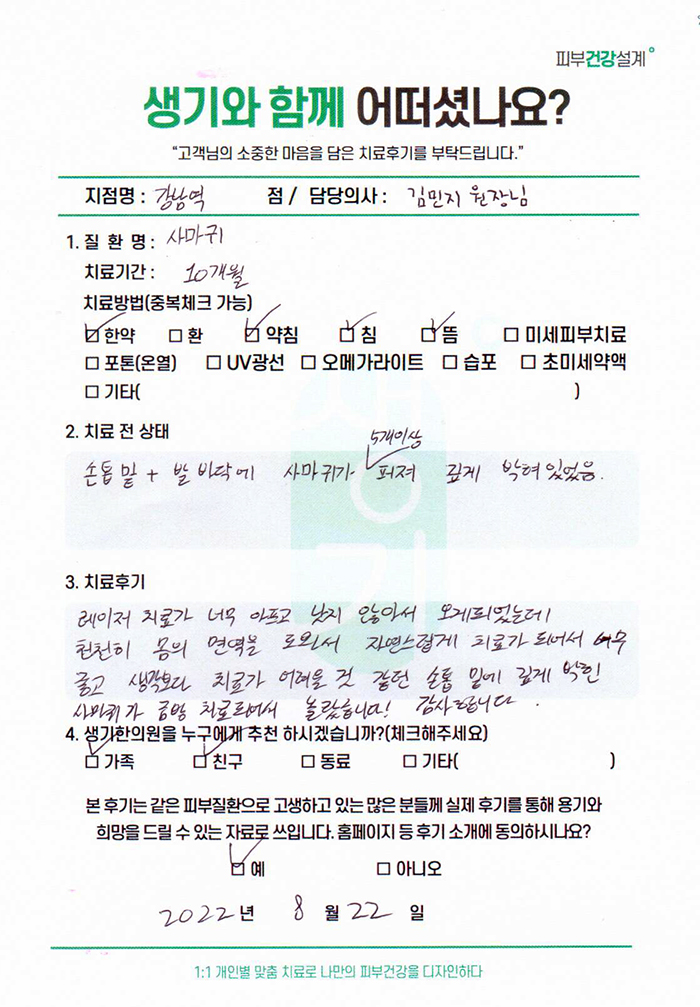 피부건강설계
생기와 함께 어떠셨나요?
"고객님의 소중한 마음을 담은 치료후기를 부탁드립니다."
지점명 : 강남역 점 / 담당의사 : 김민지 원장님
1. 질 환 명 : 사마귀
치료기간 : 10개월
치료방법(중복체크 가능)
☑ 한약 □ 환 ☑ 약침 ☑ 침 ☑ 뜸 □ 미세피부치료
□ 포톤(온열) □ UV광선 □ 오메가라이트 □ 습포 □ 초미세약액
□ 기타( )
2. 치료 전 상태
5개이상
손톱 밑 + 발바닥에 사마귀가 퍼져 깊게 박혀 있었음.
3. 치료후기
레이저 치료가 너무 아프고 낫지 않아서 오게되었는데
천천히 몸의 면역을 도와서 자연스럽게 치료가 되어서 너무
좋고 생각보다 치료가 어려울 것 같던 손톱 밑에 깊게 박힌
사마귀가 금방 치료되어서 놀랐습니다! 감사드립니다.
4. 생기한의원을 누구에게 추천 하시겠습니까?(체크해주세요)
☑ 가족 ☑ 친구 □ 동료 □ 기타( )
본 후기는 같은 피부질환으로 고생하고 있는 많은 분들께 실제 후기를 통해 용기와
희망을 드릴 수 있는 자료로 쓰입니다. 홈페이지 등 후기 소개에 동의하시나요?
☑ 예 □ 아니오
2022년 8 월 22 일
1:1 개인별 맞춤 치료로 나만의 피부건강을 디자인하다
생기